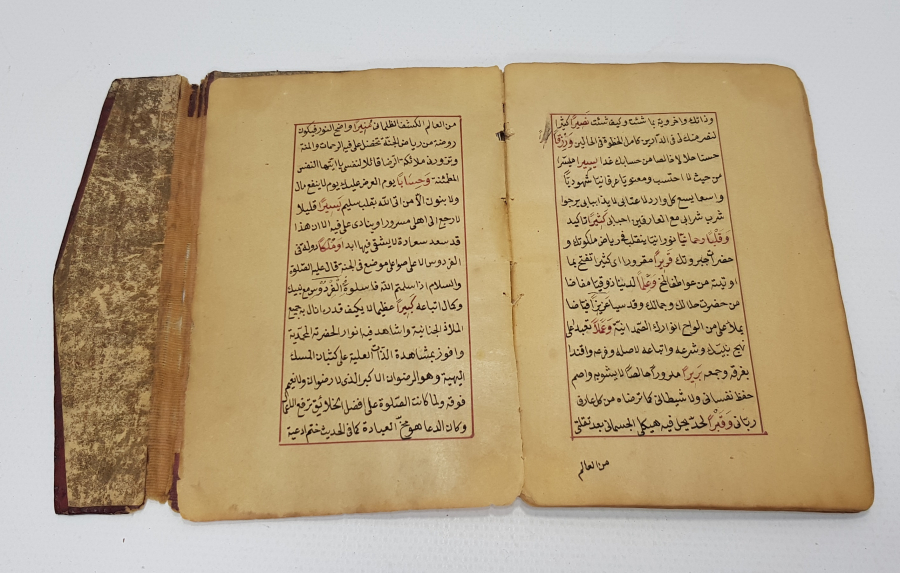 وذاتك واخروية باشئت وكيف شئت نصيرا كثيرا
لنصرضتك فى الدارين كامل الحظوة فى الحالين ورزقا
حسنا حلالا خالصا من حسابك غدا يسيرا ميسرا
من حيث لا احتسب ومعنويا عرفانيا شهوديا
واسعا يسع كل وارد للاعتابى لايذا بابى يرجوا
شرب شرابى مع العارفين احبابى كثيرا تاكيد
وقلبا رحمانيا نورانيا يتقلب فى رياض ملكوتك و
حضرات جبروتك قريرا مقرورا اى كثيرا تفتح بما
اوتيته من عواطف المنح وعلما لدنيا ذوقيا مفاضا
من حضرت جلالك وجمالك وقدسيا عزيزا فياضا
يملا على من الواح انوارك الصمدانية وعملا تعبد على
نهج نبيك وشرعه واتباعه لاصله وفرعه واقتدا
بفرقه وجمعه بريرا مبرورا خالصا لا يشوبه واصم
حفظ نفسانى ولا شيطانى كما ترضاه من كل عارف
ربانى وقبرا الحد يحل فيه هيكلى الجسمانى بعد نقلتى
من العالم
من العالم الكشف الظلمانى منيرا واضح النور فيكون
روضة من رياض الجنة تتحفنى على فيه الرحمات والمنة
وتزورنى ملائكة الرضا قائلا لنفسى يا ايتها النفس
المطمئنة وحسابا يوم العرض عليك يوم لا ينفع مال
ولا بنون الا من اتى الله بقلب سليم يسيرا قليلا
لا رجع الى اهلى مسرورا وينادى على فيه الا ان هذا
قد سعد سعادة لا يشقى فيها ابدا وملكا دولة فى
الفردوس الاعلى هو اعلى موضع فى الجنة قال عليه الصلوة
والسلام اذا سالتم الله فاسئلوه الفردوس مع نبيك
وكمال اتباعه كبيرا عظيما لا يكيف قدره انال به جميع
الملاذ الجنانية واشاهد فيه انوار الحضرة المحمدية
وافوز بمشاهدة الذات العلية على كثبان المسك
البهية وهو الرضوان الاكبر الذى لا رضوان ولا نعيم
فوقه ولما كانت الصلوة على افضل الخلائق ترفع الدعا
وكان الدعا هو مخ العبادة كما فى الحديث ختم ادعية